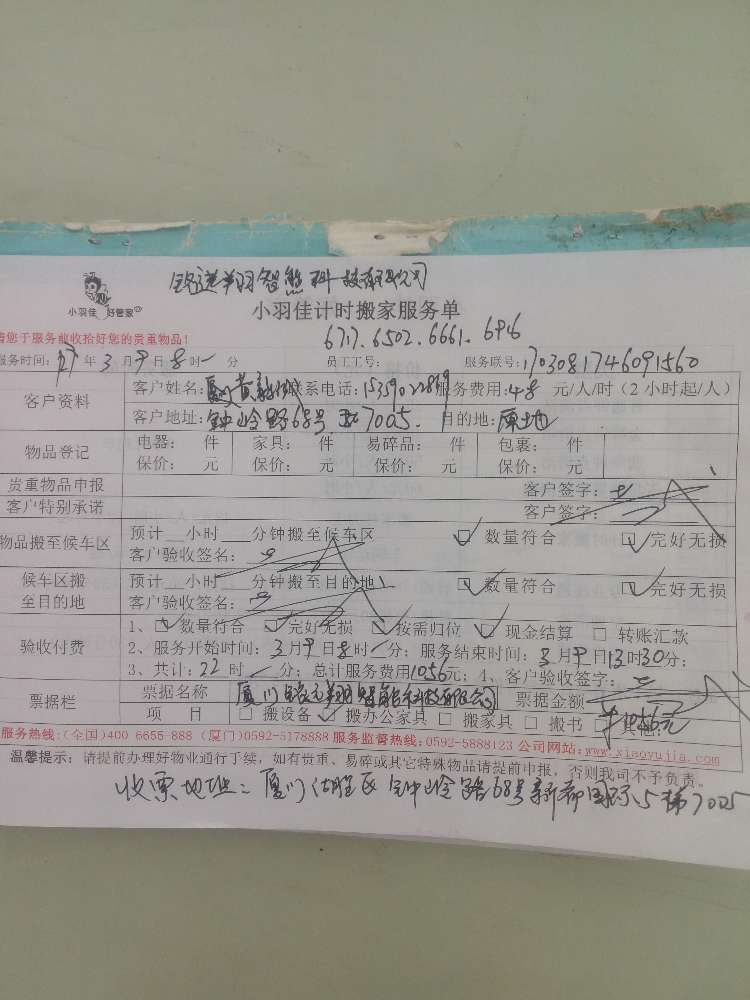 小羽佳 好管家
小羽佳计时搬家服务单
请您于服务前收拾好您的贵重物品!
6717.6502.6661.6916
服务时间: 17年3月9日8时 分 员工工号: 服务联号: 1703081746091560
客户资料 客户姓名: 联系电话: 15359022849 服务费用: 48 元/人/时(2小时起/人)
客户地址: 钟岭路68号 7005. 目的地: 原地
物品登记 电器: 件 家具: 件 易碎品: 件 包裹: 件
保价: 元 保价: 元 保价: 元 保价: 元
贵重物品申报 客户签字:
客户特别承诺 客户签字:
物品搬至候车区 预计__小时___分钟搬至候车区 数量符合 完好无损
客户验收签名:
候车区搬至目的地 预计__小时___分钟搬至目的地 数量符合 完好无损
客户验收签名:
验收付费 1、数量符合 完好无损 按需归位 现金结算 转账汇款
2、服务开始时间: 3月9日8时 分; 服务结束时间: 3月9日13时30分;
3、共计: 22时 分; 总计服务费用1056元; 4、客户验收签字:
票据栏 票据名称 票据金额 1056元
项 目 搬设备 搬办公家具 搬家具 搬书 其他:
服务热线:(全国)400 6655-888 (厦门)0592-5178888 服务监督热线:0592-5888123 公司网站:www.xiaoyujia.com
温馨提示: 请提前办理好物业通行手续, 如有贵重、易碎或其它特殊物品请提前申报, 否则我司不予负责。
收票地址: 厦门 区 钟岭路68号新都国际 5梯7005